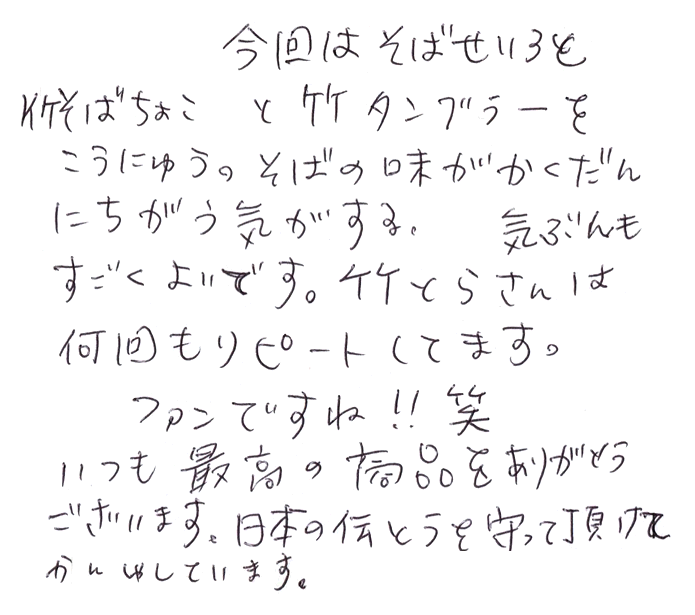 今回は そばせいろと
竹そばちょこ と 竹タンブラーを
こうにゅう。そばの味がかくだん
にちがう気がする。 気ぶんも
すごくよいです。竹とらさんは
何回もリピートしてます。
ファンですね!! 笑
いつも 最高の商品をありがとう
ございます。日本の伝とうを守って頂けて
かんしゃしています。